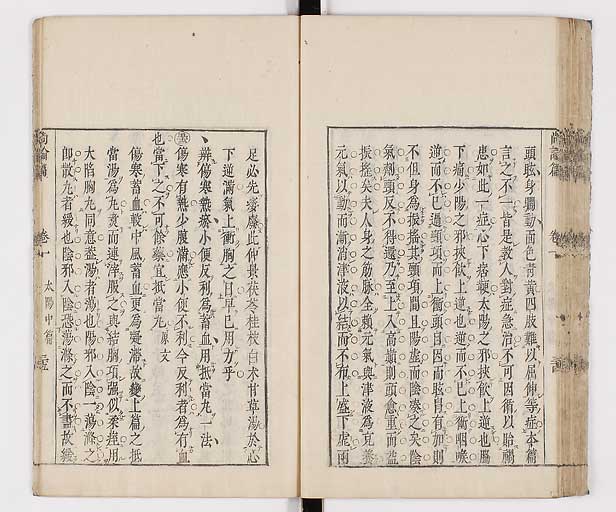 頭眩身瞤動面色青黃四肢難以屈伸等症本篇
言之不一皆是教人對症急治不可因循以貽禍
患如此一症心下痞鞕太陽之邪挾飲上逆也脇
下痛少陽之邪挾飲上逆也逆而不已上衝咽喉
逆而不已過頸項而上衝頭目因而眩冒有加則
不但身為振搖其頸項間且陽虛而陰湊之矣陰
氣剿頸而反不得還乃至上入高巔則頭愈重而益
振搖矣夫人身之筋脉全賴元氣與津液為宜養
元氣以動而漸消津液以結而不布上盛下虛兩
足必先痿廢此仲景茯苓桂枝白朮甘草湯於心
下逆滿氣上衝胸之日早已用力乎
辨傷寒熱瘀小便反利為蓄血用抵當丸一法
傷寒有熱少腹滿應小便不利今反利者為有血
也當下之不可餘藥宜抵當丸 原文
傷寒蓄血較中風蓄血更為凝滯故變上篇之抵
當湯為丸煮而連滓服之與結胸項强似柔痓用
大陷胸丸同意蓋湯者蕩也陽邪入陰一蕩滌之
即散丸者緩也陰邪入陰恐蕩滌之而不盡故緩
尚論篇 卷一 太陽中篇